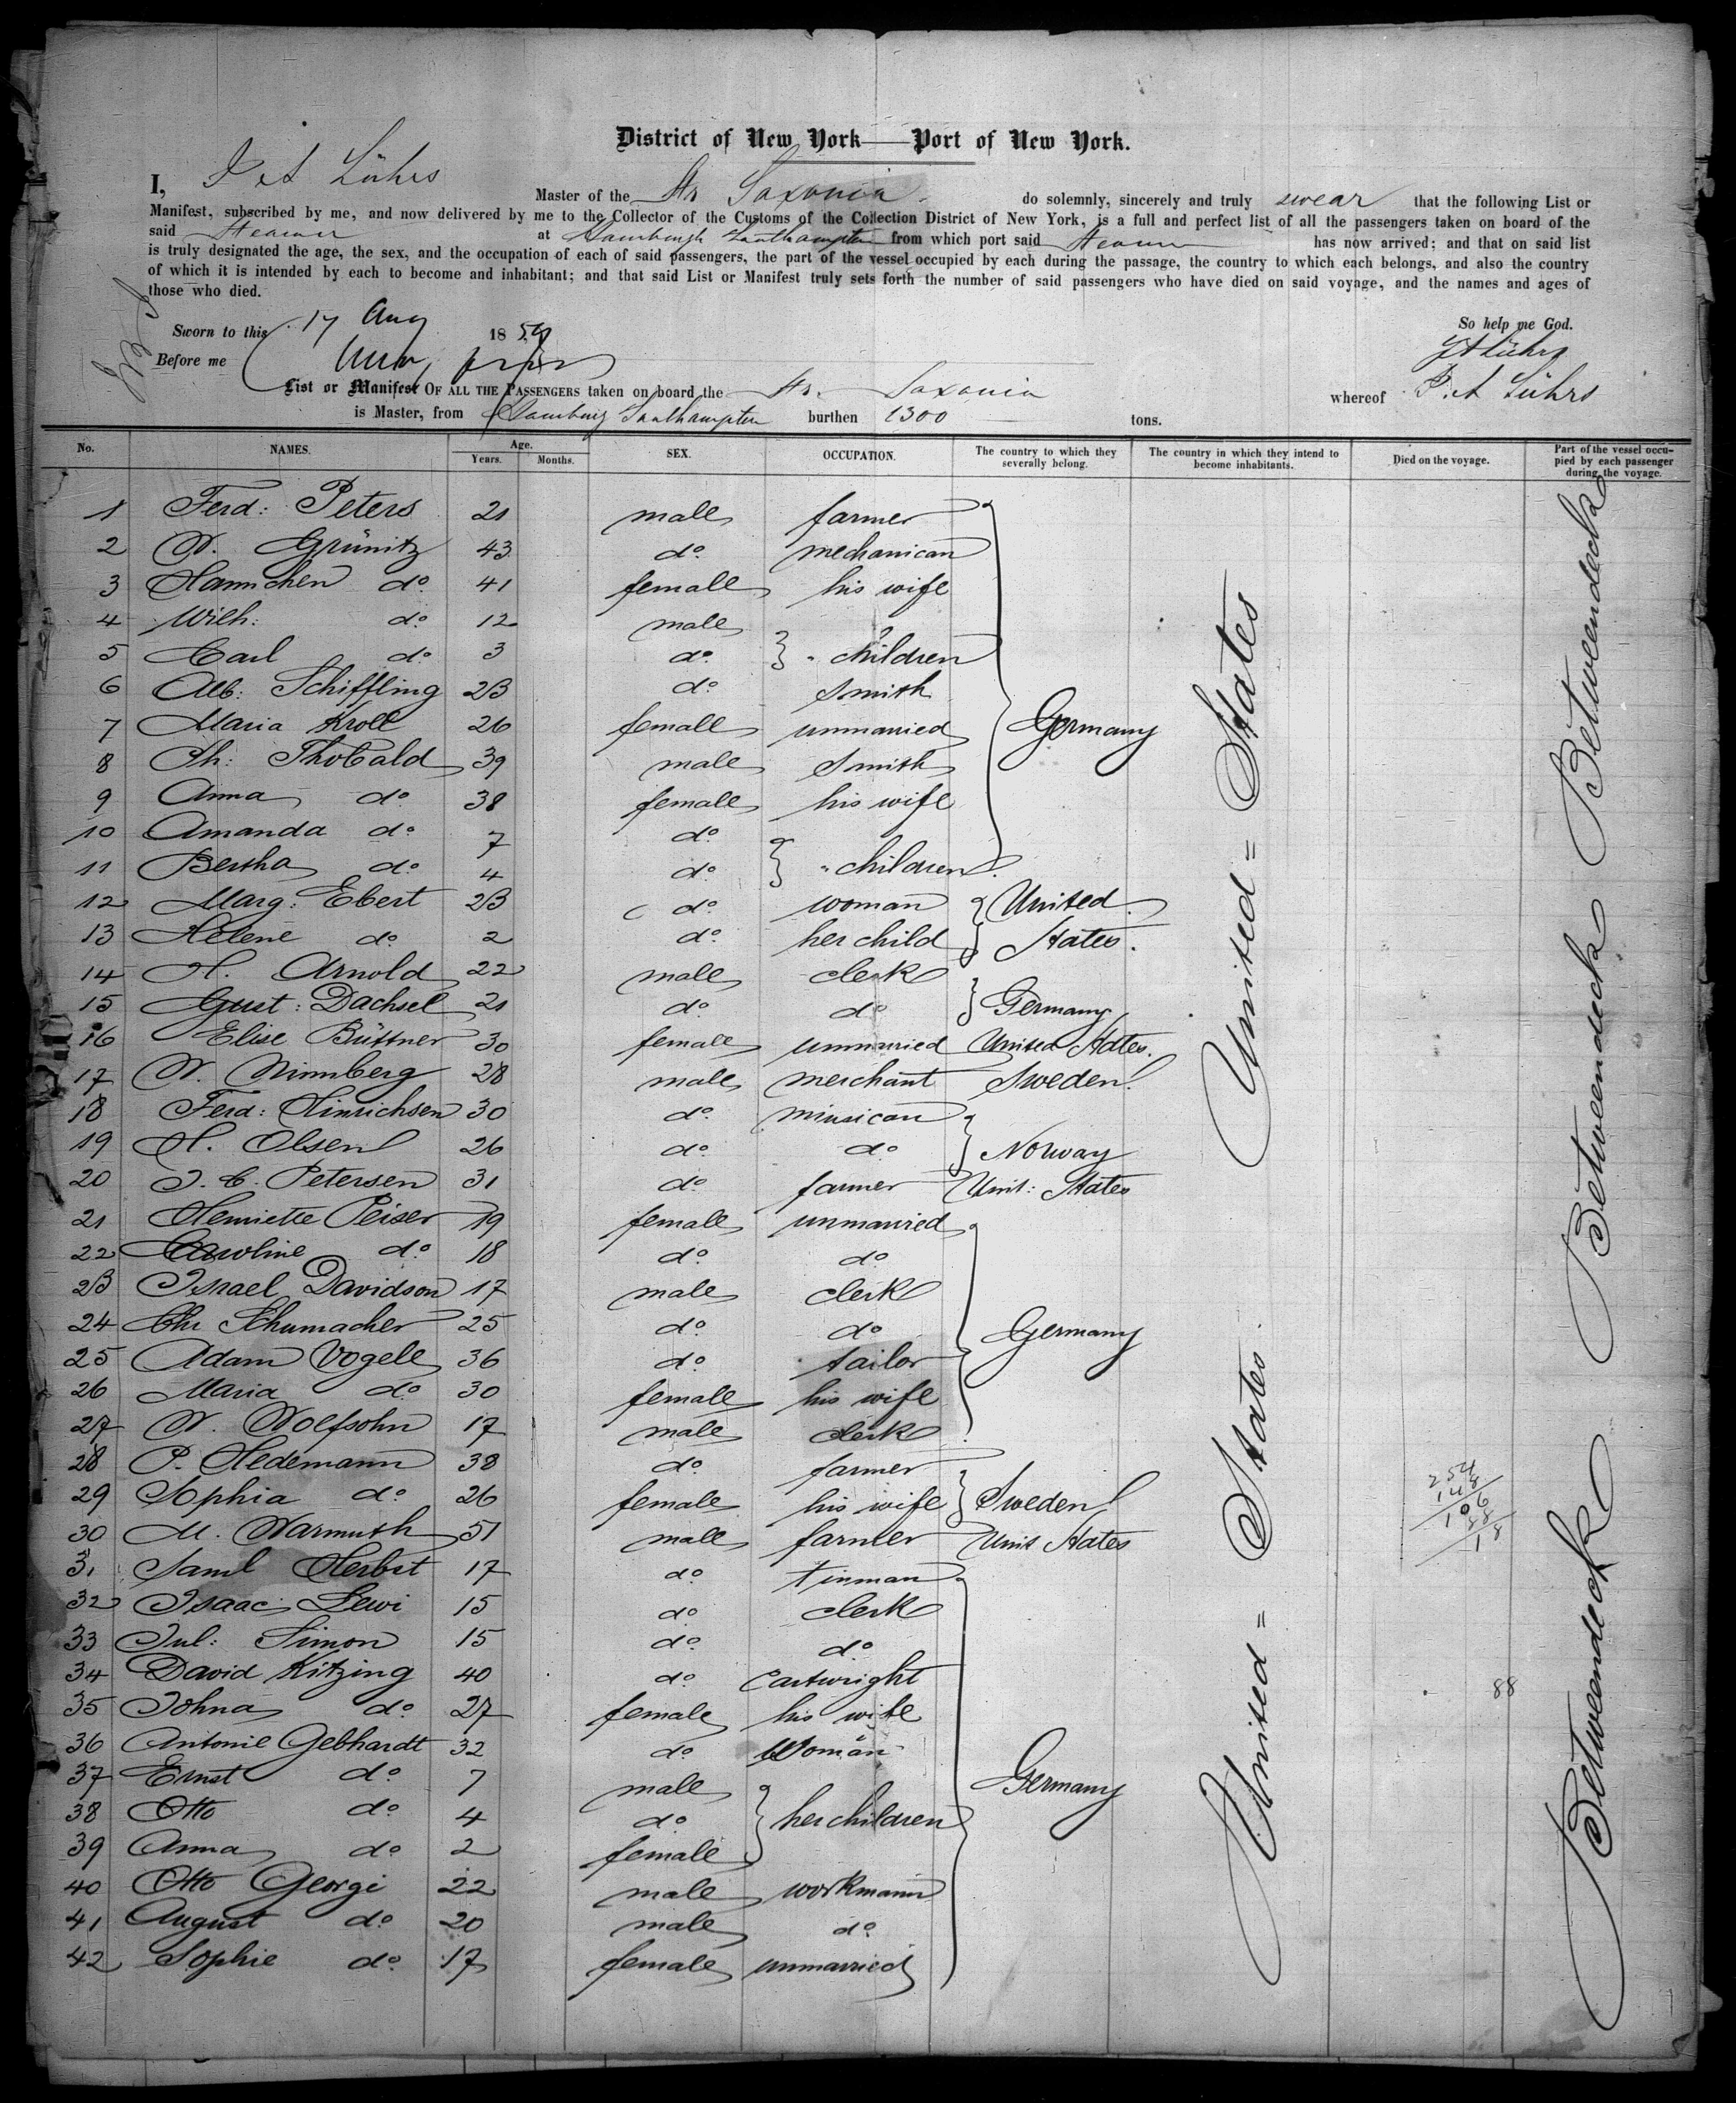 District of New York — Port of New York.
I, Lührs Master of the Str Saxonia do solemnly, sincerely and truly swear that the following List or
Manifest, subscribed by me, and now delivered by me to the Collector of the Customs of the Collection District of New York, is a full and perfect list of all the passengers taken on board of the
said Steamer at Hamburgh Southampton from which port said Steamer has now arrived; and that on said list
is truly designated the age, the sex, and the occupation of each of said passengers, the part of the vessel occupied by each during the passage, the country to which each belongs, and also the country
of which it is intended by each to become and inhabitant; and that said List or Manifest truly sets forth the number of said passengers who have died on said voyage, and the names and ages of
those who died.
So help me God.
Sworn to this 17 Aug 1859
Before me
Lührs
List or Manifest OF ALL THE PASSENGERS taken on board the Str. Saxonia whereof Lührs
is Master, from Hamburg Southampton burthen 1300 tons.
No. NAMES. Age. Years. Months. SEX. OCCUPATION. The country to which they severally belong. The country in which they intend to become inhabitants. Died on the voyage. Part of the vessel occupied by each passenger during the voyage.
1 Ferd: Peters 21 male farmer
2 W. Grünitz 43 do. mechanican
3 Hannchen do. 41 female his wife
4 Wilh: do. 12 male
5 Carl do. 3 do. } " children
6 Alb: Schiffling 23 do. Smith
7 Maria Kroll 26 female unmarried Germany
8 Ch: Thobald 39 male Smith
9 Anna do. 38 female his wife
10 Amanda do. 7 do.
11 Bertha do. 4 do. } " children
12 Marg: Ebert 23 do. woman United
13 Helene do. 2 do. her child States.
14 H. Arnold 22 male clerk
15 Gust: Dachsel 21 do. do Germany
16 Elise Büttner 30 female unmarried United States.
17 W. Nimnberg 28 male merchant Sweden
18 Ferd: Hinrichsen 30 do. miusican
19 H. Olsen 26 do. do. Norway
20 J. C. Petersen 31 do. farmer Unit: States
21 Henriette Peiser 19 female unmarried
22 Caroline do. 18 do. do.
23 Israel Davidson 17 male clerk
24 Chr Schumacher 25 do. do Germany
25 Adam Vogele 36 do. tailor
26 Maria do. 30 female his wife
27 W. Wolfsohn 17 male clerk
28 P. Hedemann 38 do. farmer
29 Sophia do. 26 female his wife Sweden
30 M. Warmuth 51 male farmer Unit States
31 Saml Herbst 17 do. tinman
32 Isaac Lewi 15 do. clerk
33 Jul: Simon 15 do. do.
34 David Kitzing 40 do. Cartwright
35 Johna do. 27 female his wife
36 Antonie Gebhardt 32 do. Woman
37 Ernst do. 7 male Germany
38 Otto do. 4 do. her children
39 Anna do. 2 female
40 Otto Georgi 22 male workmann
41 August do. 20 male do.
42 Sophie do. 17 female unmarried
United = States
United = States
Betweendeck
Betweendeck
Betweendeck
254
148
106
88
18
88